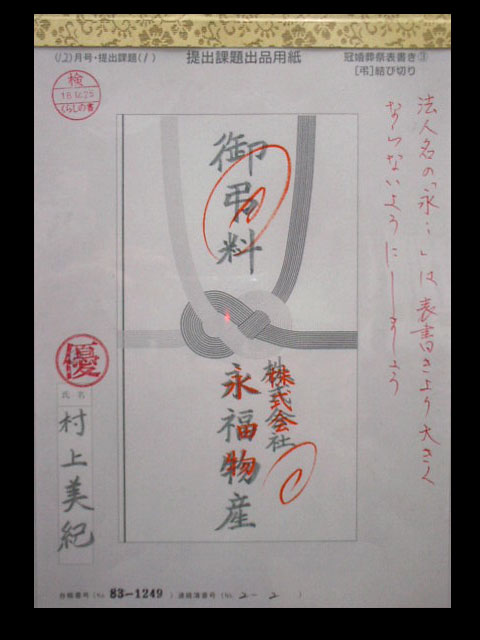 (12)月号・提出課題(1)
提出課題出品用紙
冠婚葬祭表書き③
[弔]結び切り
検
18.12.25
くらしの書
法人名の「永…」は表書きより大きく
ならないようにしましょう
御弔料
株式会社
永福物産
優
氏名
村上美紀
台帳番号(No. 83-1249 ) 連絡簿番号(No. 2-2 )